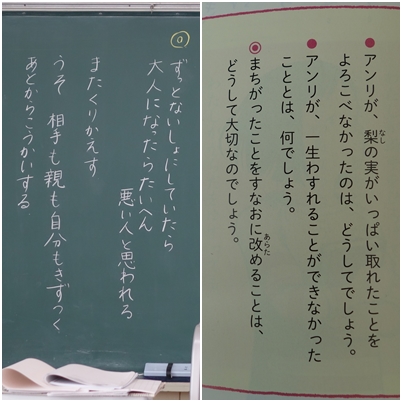 ◎
ずっとないしょにしていたら
大人になったらたいへん
悪い人と思われる
またくりかえす
うそ 相手も親も自分もきずつく
あとからこうかいする
● アンリが、梨の実がいっぱい取れたことを
よろこべなかったのは、どうしてでしょう。
● アンリが、一生わすれることができなかった
こととは、何でしょう。
◎ まちがったことをすなおに改めることは、
どうして大切なのでしょう。
なし
あらた